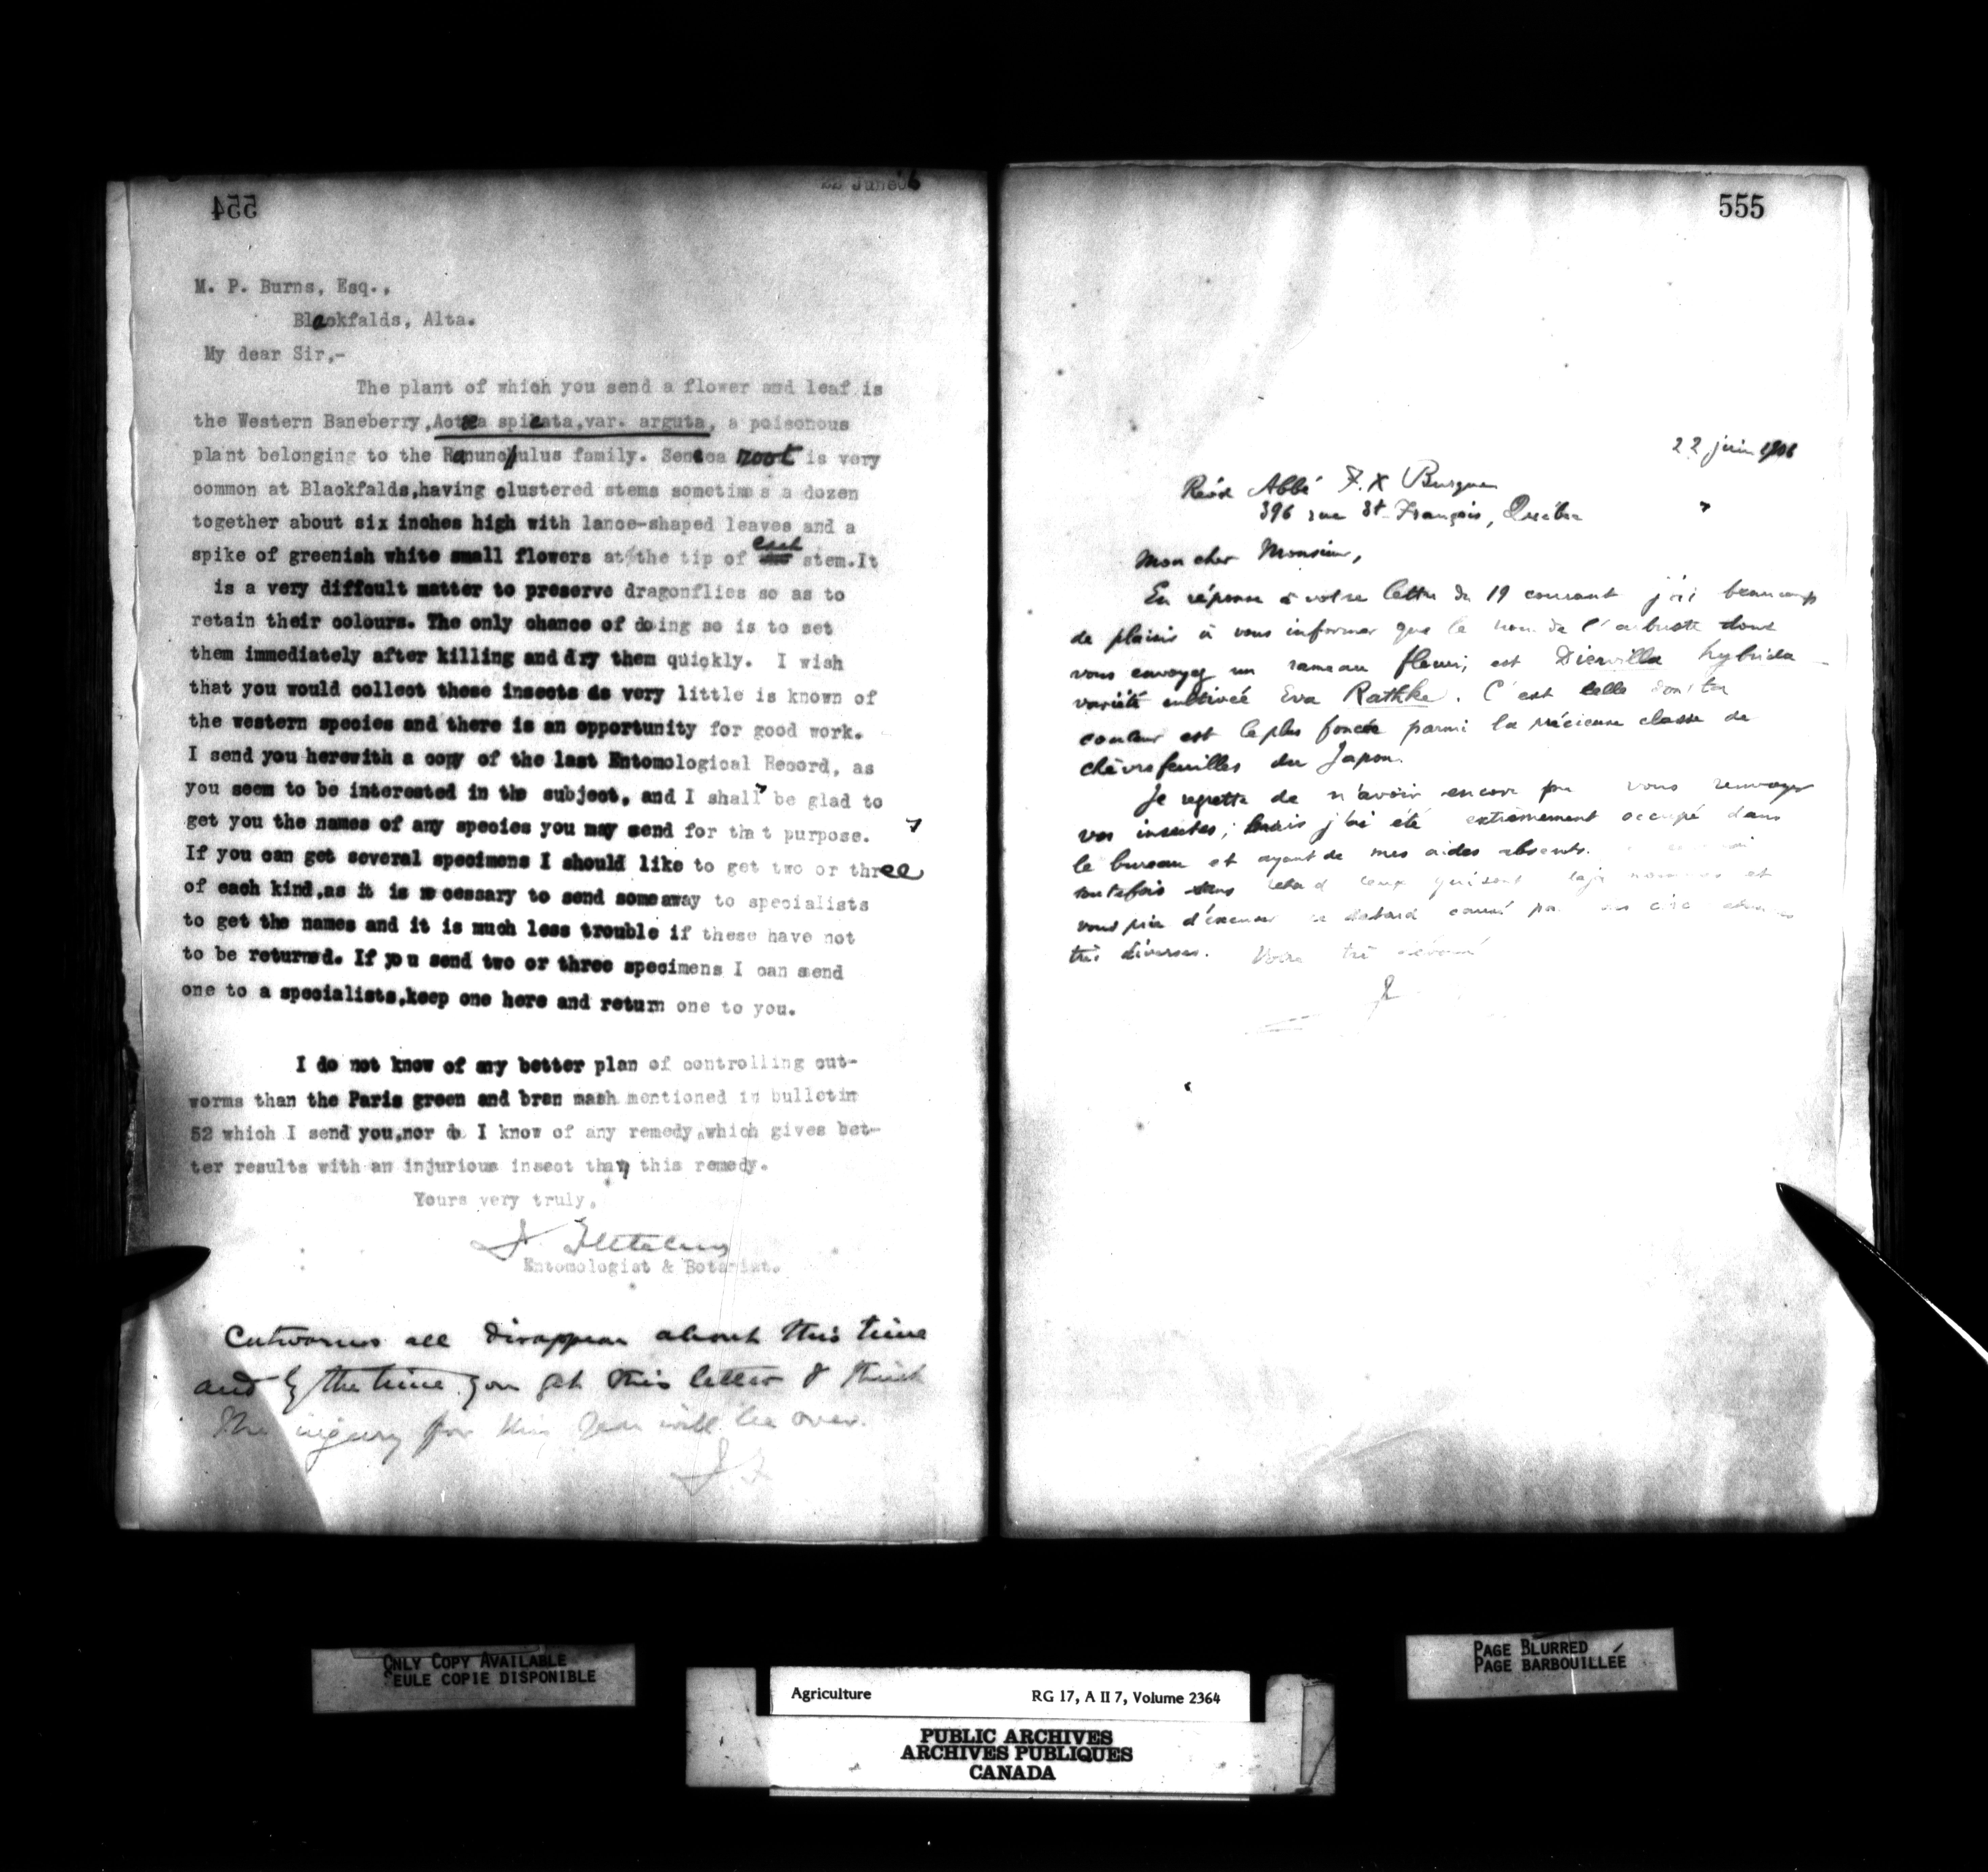 22 June 06
554
M. P. Burns, Esq.,
Blackfalds, Alta.
My dear Sir,-
The plant of which you send a flower and leaf is
the Western Baneberry, Actæa spicata, var. arguta, a poisonous
plant belonging to the Ranunculus family. Seneca root is very
common at Blackfalds, having clustered stems sometimes a dozen
together about six inches high with lance-shaped leaves and a
spike of greenish white small flowers at the tip of each stem. It
is a very diffcult matter to preserve dragonflies so as to
retain their colours. The only chance of doing so is to set
them immediately after killing and dry them quickly. I wish
that you would collect these insects as very little is known of
the western species and there is an opportunity for good work.
I send you herewith a copy of the last Entomological Record, as
you seem to be interested in the subject, and I shall be glad to
get you the names of any species you may send for that purpose.
If you can get several specimens I should like to get two or three
of each kind, as it is necessary to send some away to specialists
to get the names and it is much less trouble if these have not
to be returned. If you send two or three specimens I can send
one to a specialists, keep one here and return one to you.
I do not know of any better plan of controlling cut-
worms than the Paris green and bran mash mentioned in bulletin
52 which I send you, nor do I know of any remedy which gives bet-
ter results with an injurious insect than this remedy.
Yours very truly,
J. Fletcher
Entomologist & Botanist.
Cutworms all disappear about this time
and by the time you get this letter I think
the injury for this year will be over.
J F
555
22 juin 1906
Revd Abbé F. X Burque
396 rue St-François, Québec
Mon cher Monsieur,
En réponse à votre lettre du 19 courant j'ai beaucoup
de plaisir à vous informer que le nom de l'arbuste dont
vous envoyez un rameau fleuri, est Diervilla hybrida
variété cultivée Eva Rathke. C'est celle dont la
couleur est le plus foncée parmi la précieuse classe de
chèvrefeuilles du Japon.
Je regrette de n'avoir encore pu vous renvoyer
vos insectes; mais j'ai été extrêmement occupé dans
le bureau et ayant de mes aides absents.
toutefois sans retard ceux qui sont déjà nommés et
vous prie d'excuser ce retard causé par des
très diverses. Votre très dévoué
J
ONLY COPY AVAILABLE
EULE COPIE DISPONIBLE
PAGE BLURRED
PAGE BARBOUILLÉE
Agriculture RG 17, A II 7, Volume 2364
PUBLIC ARCHIVES
ARCHIVES PUBLIQUES
CANADA